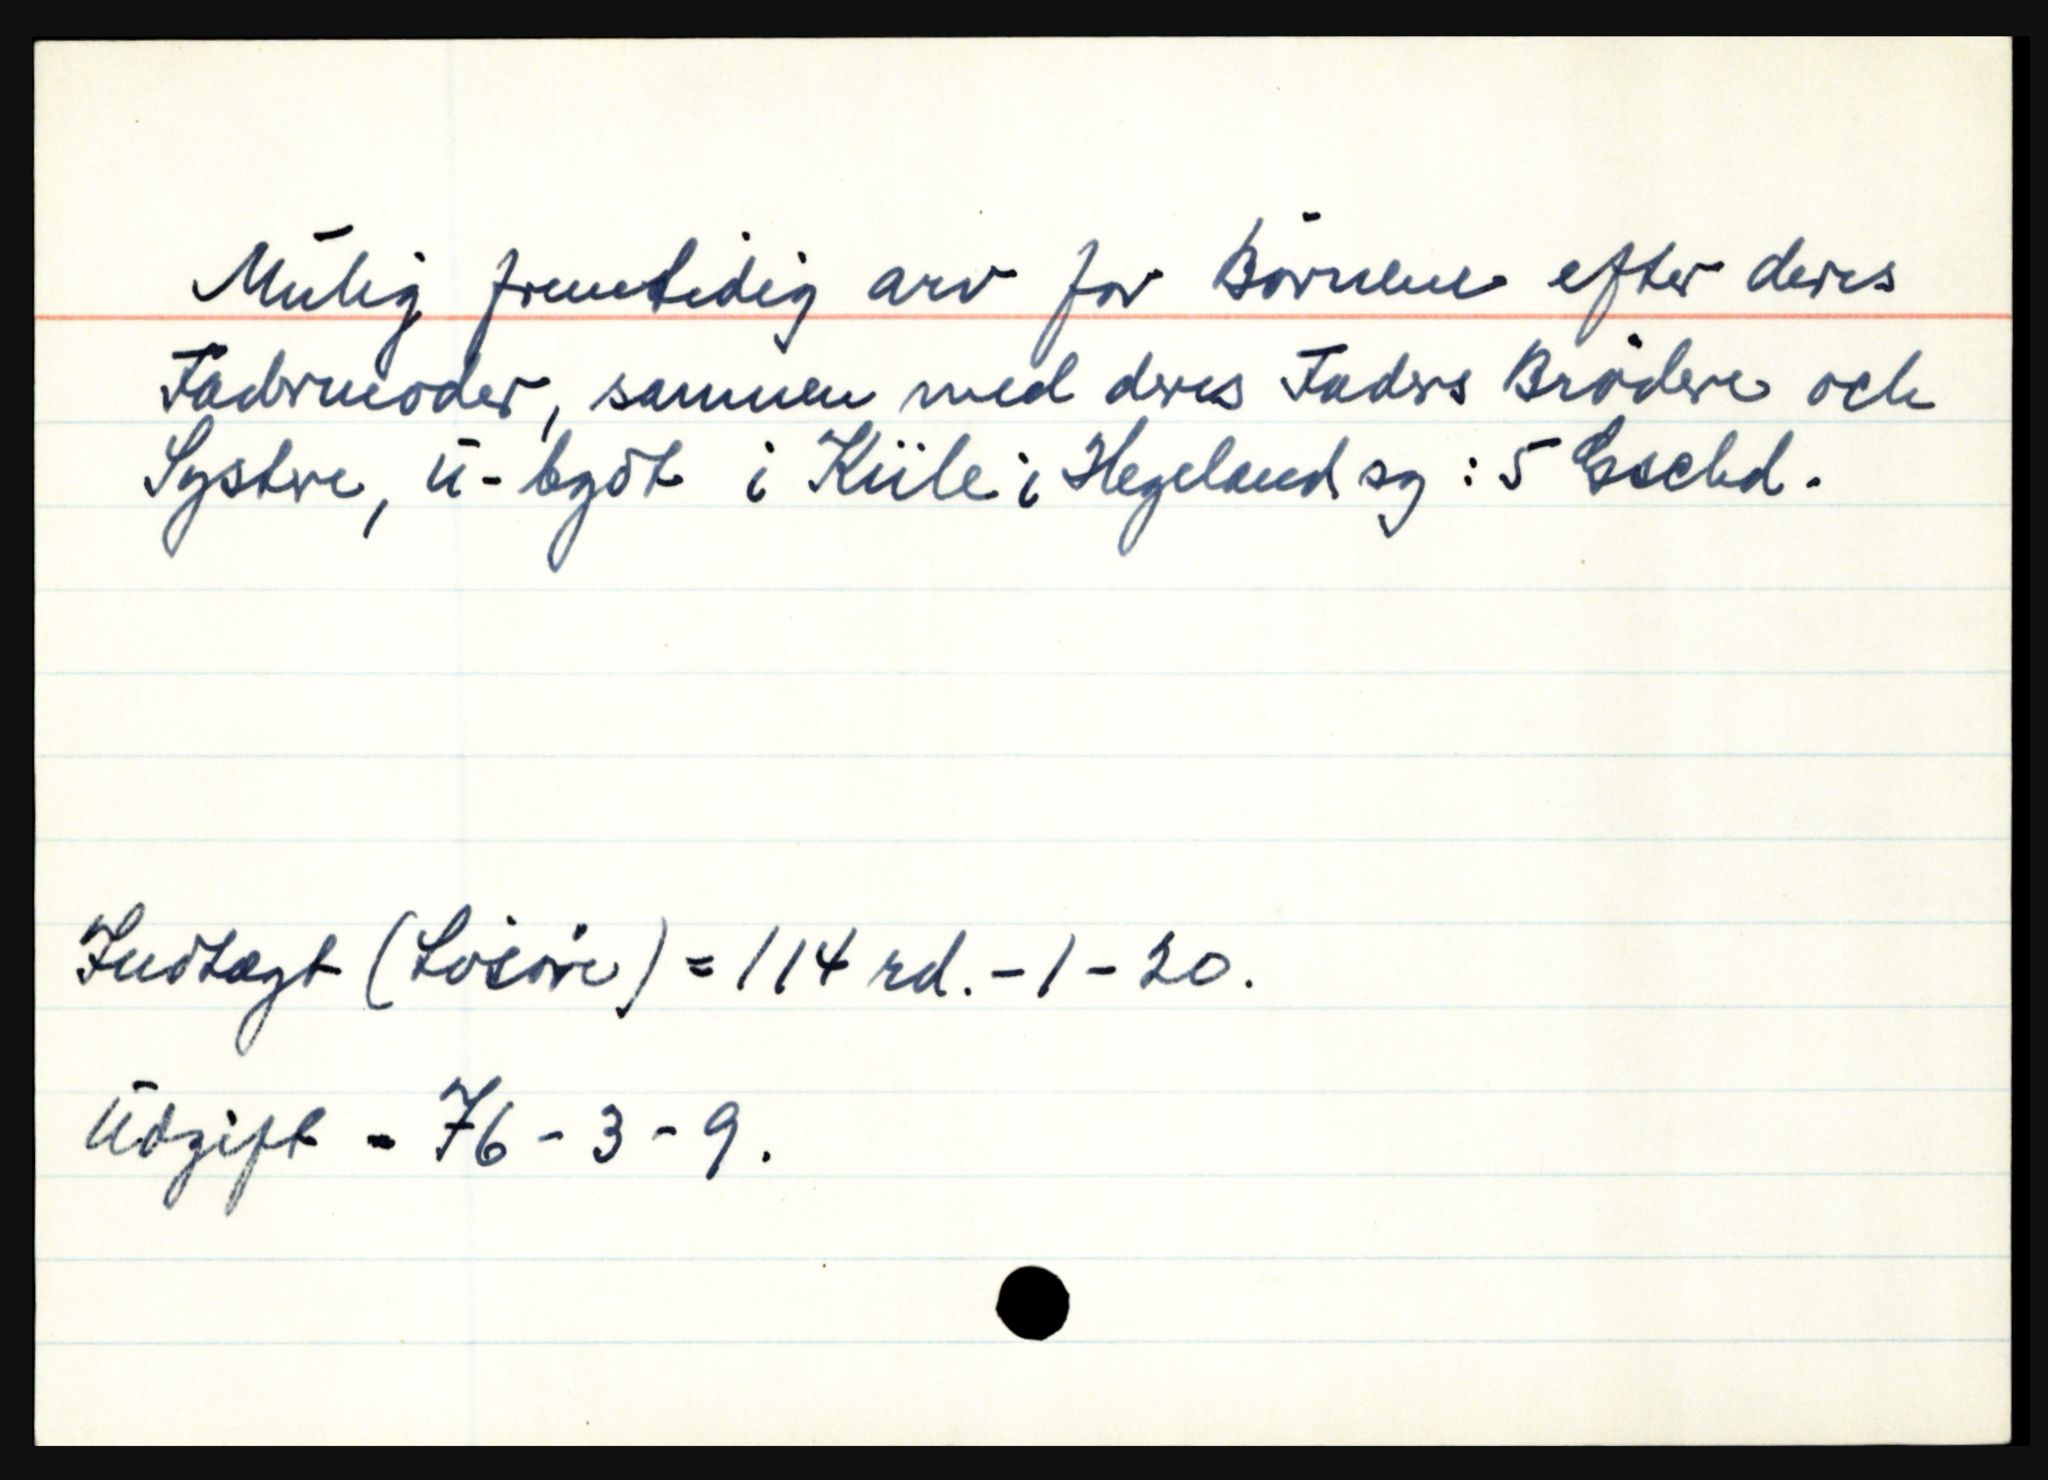 Mūlig fremtidig arv for Börnene efter deres
Fadermoder, sammen med deres Faders Brödere och
Systre, ū-bygöt i Kiile i Hegeland sg : 5 Gschd.
Indtægt (Lösöre) = 114 rd. - 1 - 20.
Ūdgift - 76 - 3 - 9.